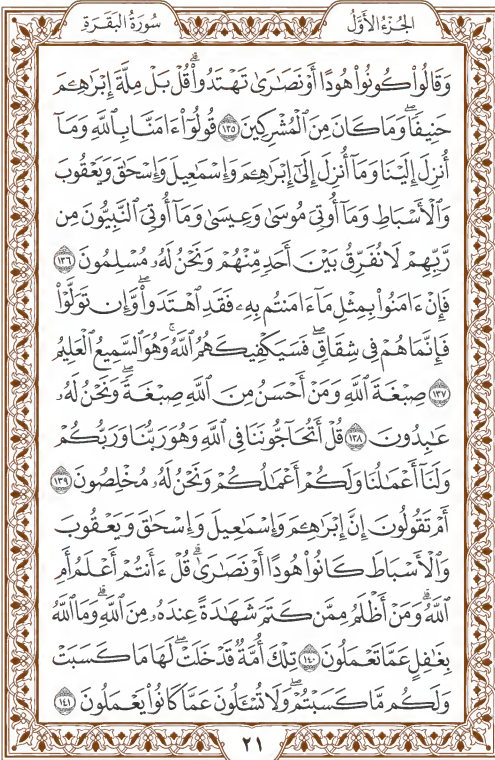 الجُزْءُ الأَوَّلُ سُورَةُ البَقَرَةِ
وَقَالُوا۟ كُونُوا۟ هُودًا أَوْ نَصَـٰرَىٰ تَهْتَدُوا۟ ۗ قُلْ بَلْ مِلَّةَ إِبْرَٰهِـۧمَ
حَنِيفًا ۖ وَمَا كَانَ مِنَ ٱلْمُشْرِكِينَ ١٣٥ قُولُوٓا۟ ءَامَنَّا بِٱللَّهِ وَمَآ
أُنزِلَ إِلَيْنَا وَمَآ أُنزِلَ إِلَىٰٓ إِبْرَٰهِـۧمَ وَإِسْمَـٰعِيلَ وَإِسْحَـٰقَ وَيَعْقُوبَ
وَٱلْأَسْبَاطِ وَمَآ أُوتِىَ مُوسَىٰ وَعِيسَىٰ وَمَآ أُوتِىَ ٱلنَّبِيُّونَ مِن
رَّبِّهِمْ لَا نُفَرِّقُ بَيْنَ أَحَدٍ مِّنْهُمْ وَنَحْنُ لَهُۥ مُسْلِمُونَ ١٣٦
فَإِنْ ءَامَنُوا۟ بِمِثْلِ مَآ ءَامَنتُم بِهِۦ فَقَدِ ٱهْتَدَوا۟ ۖ وَّإِن تَوَلَّوْا۟
فَإِنَّمَا هُمْ فِى شِقَاقٍ ۖ فَسَيَكْفِيكَهُمُ ٱللَّهُ ۚ وَهُوَ ٱلسَّمِيعُ ٱلْعَلِيمُ
١٣٧ صِبْغَةَ ٱللَّهِ ۖ وَمَنْ أَحْسَنُ مِنَ ٱللَّهِ صِبْغَةً ۖ وَنَحْنُ لَهُۥ
عَـٰبِدُونَ ١٣٨ قُلْ أَتُحَآجُّونَنَا فِى ٱللَّهِ وَهُوَ رَبُّنَا وَرَبُّكُمْ
وَلَنَآ أَعْمَـٰلُنَا وَلَكُمْ أَعْمَـٰلُكُمْ وَنَحْنُ لَهُۥ مُخْلِصُونَ ١٣٩
أَمْ تَقُولُونَ إِنَّ إِبْرَٰهِـۧمَ وَإِسْمَـٰعِيلَ وَإِسْحَـٰقَ وَيَعْقُوبَ
وَٱلْأَسْبَاطَ كَانُوا۟ هُودًا أَوْ نَصَـٰرَىٰ ۗ قُلْ ءَأَنتُمْ أَعْلَمُ أَمِ
ٱللَّهُ ۗ وَمَنْ أَظْلَمُ مِمَّن كَتَمَ شَهَـٰدَةً عِندَهُۥ مِنَ ٱللَّهِ ۗ وَمَا ٱللَّهُ
بِغَـٰفِلٍ عَمَّا تَعْمَلُونَ ١٤٠ تِلْكَ أُمَّةٌ قَدْ خَلَتْ ۖ لَهَا مَا كَسَبَتْ
وَلَكُم مَّا كَسَبْتُمْ ۖ وَلَا تُسْـَٔلُونَ عَمَّا كَانُوا۟ يَعْمَلُونَ ١٤١
٢١